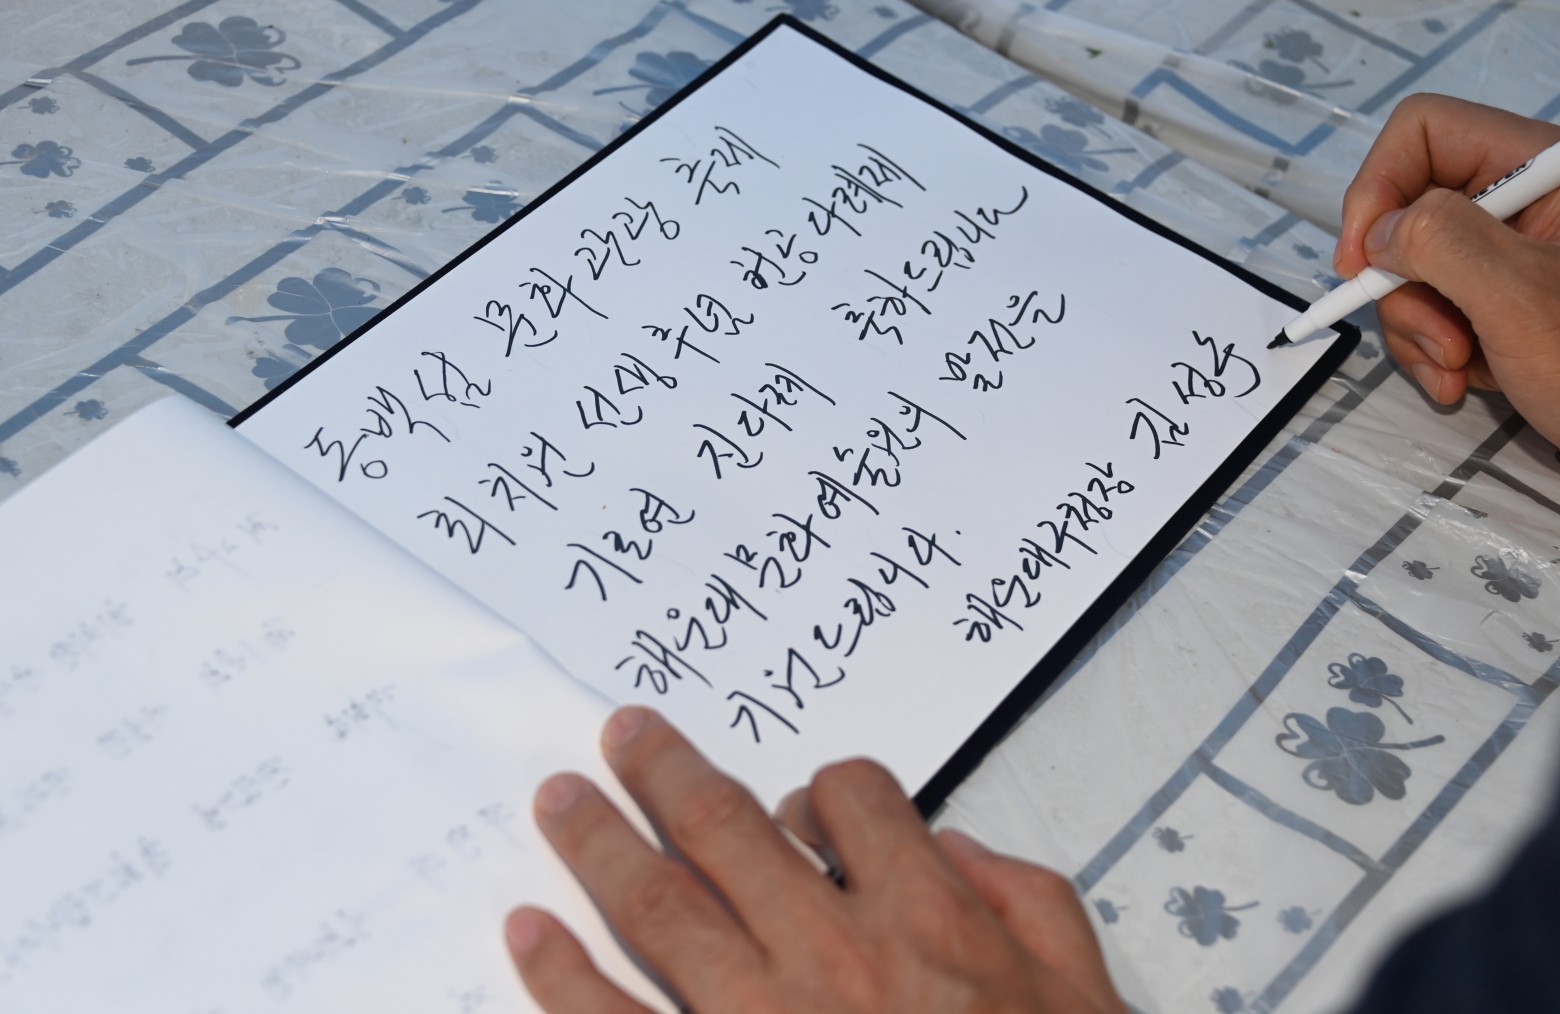 동백섬 문화관광 축제
최치원 선생 추년 헌공다례제
기로연 진다례 축하드립니다
해운대 문화예술원의 발전을
기원드립니다.
해운대구청장 김성수